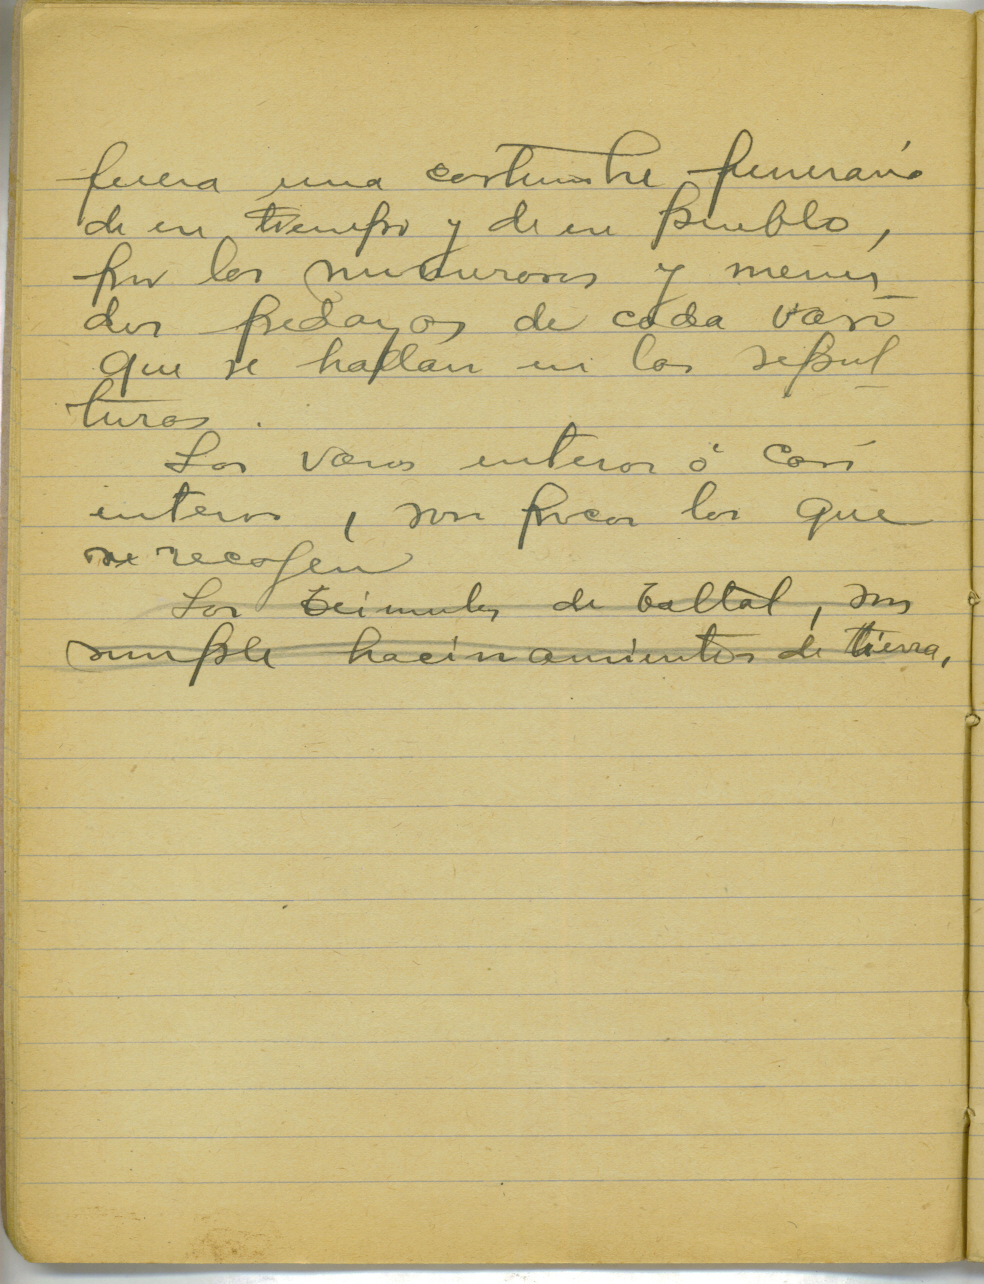 fuera una costumbre funeraria
de un tiempo y de un pueblo,
por los numerosos y menu
dos pedazos de cada vaso
que se hallan en las sepul
turas.
Los vasos enteros ó casi
enteros, son pocos los que
se recogen
Los túmulos de Taltal, son
simple hacinamientos de tierra,